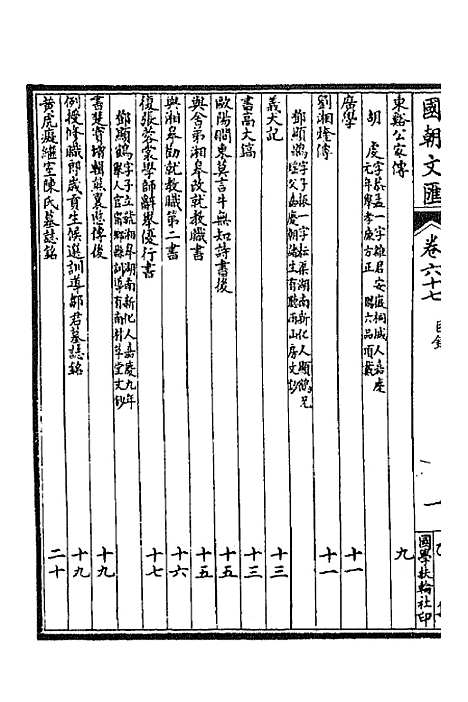 國朝文匯 卷六十七 目錄 一
國學扶輪社印
東谿公家傳 九
胡虔 字恭孟一字雒君安徽桐城人嘉慶元年舉孝廉方正賜六品頂戴
廣學 十一
劉湘煃傳 十一
鄧顯鵑 字子振一字耘渠湖南新化人顯鶴兄嘉慶朝諸生有聽雨山房文鈔
義犬記 十三
書高大鎬 十三
歐陽磵東莫言牛無知詩書後 十五
與舍弟湘皋改就教職書 十五
與湘皋勸就教職第二書 十六
復張蓉裳學師辭舉優行書 十七
鄧顯鶴 字子立號湘皋湖南新化人嘉慶九年舉人官甯鄉縣訓導有南村草堂文鈔
書婁賓增輯熊襄愍傳後 十九
例授修職郎歲貢生候選訓導鄒君墓誌銘 十九
黃虎癡繼室陳氏墓誌銘 二十